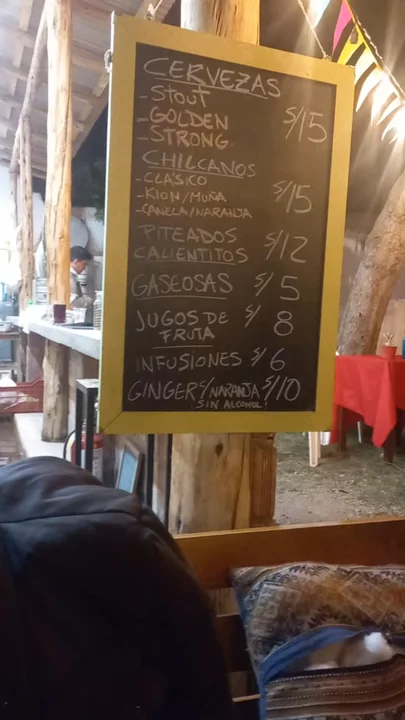 CERVEZAS
-STOUT
-GOLDEN S/15
-STRONG
CHILCANOS
-CLASICO
-KION/MUÑA S/15
-CANELA/NARANJA
PITEADOS
CALIENTITOS S/12
GASEOSAS S/5
JUGOS DE
FRUTA S/8
INFUSIONES S/6
GINGER C/NARANJA S/10
SIN ALCOHOL